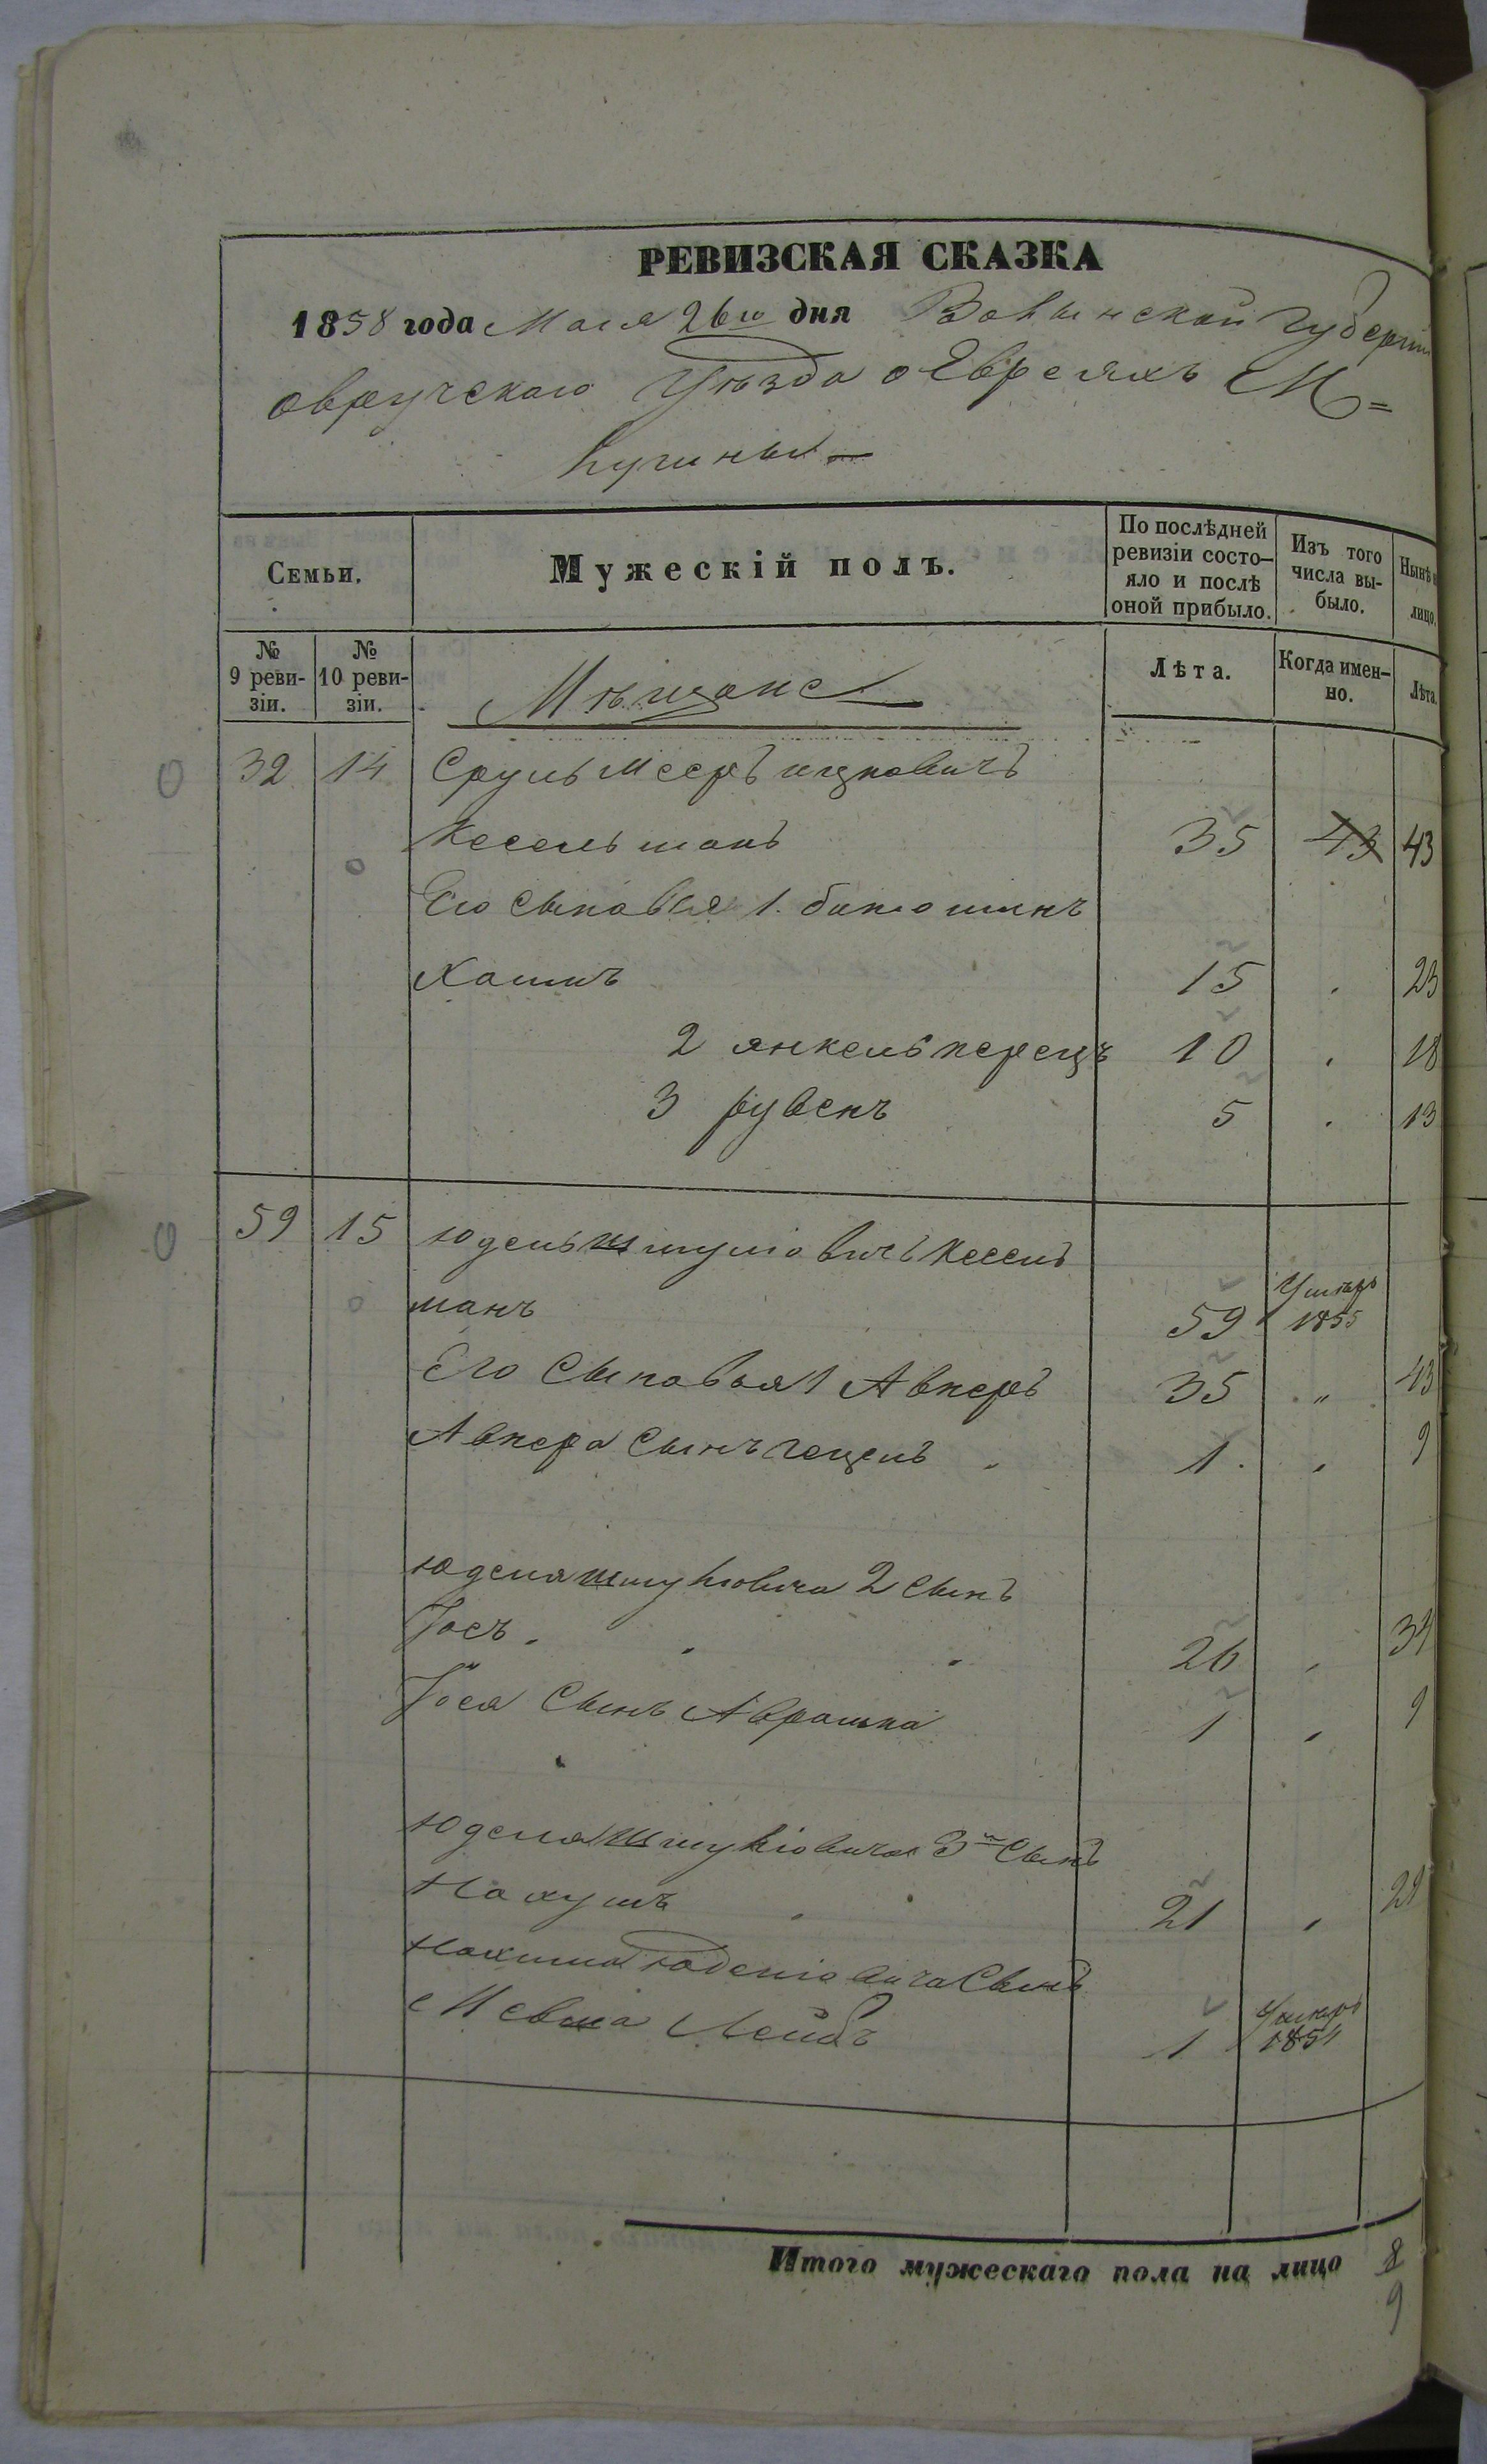 РЕВИЗСКАЯ СКАЗКА
1858 года Маія 26го дня Волынской Губерніи
овручскаго Уѣзда о Евреяхъ М=
Лугины
Семьи.
Мужескій полъ.
По послѣдней ревизіи состо-яло и послѣ оной прибыло.
Изъ того числа вы-было.
Нынѣ н
лицо.
№ 9 реви-зіи.
№ 10 реви-зіи.
Мѣщане
Лѣта.
Когда имен-но.
Лѣта.
32 14 Сруль Мееръ ицковичъ
Кесельманъ 35 43 43
Его Сыновья 1.
Хаимъ 15 . 23
2 янкель перецъ 10 . 18
3 рувенъ 5 . 13
59 15 юдель шмулiовичъ Кесель
манъ 59 Умеръ 1855
Его Сыновья 1 Авнеръ 35 „ 43
Авнера Сынъ гецель 1 . 9
юделя шмулiовича 2 Сынъ
Іосъ. 26 . 34
Іося Сынъ Аврамка 1 . 9
юделя Шмулiовича 3й Сынъ
Нахумъ 21 . 29
Нахима юделiовича Сынъ
Мевша Лейбъ 1 Умеръ 1854
Итого мужескаго пола на лицо 8
9